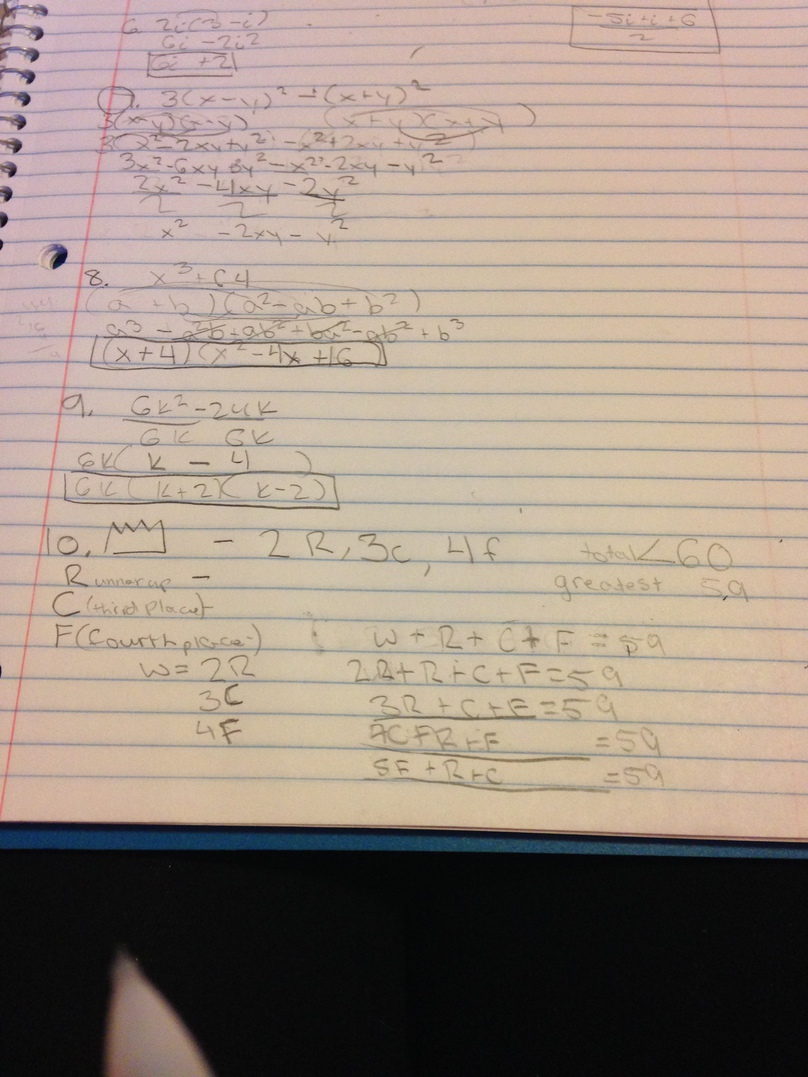 6. 2i(3-i)
6i - 2i²
6i + 2
-5i+i+6
2
7. 3(x-y)² - (x+y)²
3(x-y)(x-y) (x+y)(x+y)
3(x²-2xy+y²) - x²+2xy+y²)
3x²-6xy+3y²-x²-2xy-y²
2x² -4xy -2y²
2 2 2
x² -2xy - y²
8. x³+64
(a + b)(a²-ab+b²)
a³ - a²b+ab²+ba²-ab²+b³
(x+4)(x²-4x+16)
9. 6k²-24k
6k 6k
6k(k - 4)
6k(k+2)(k-2)
10. - 2R, 3c, 4f total<60
Runner up - greatest 59
C(third place)-
F(Fourth place-) W+R+C+F=59
W=2R 2R+R+C+F=59
3C 3R+C+F=59
4F +R+F =59
5F+R+C =59